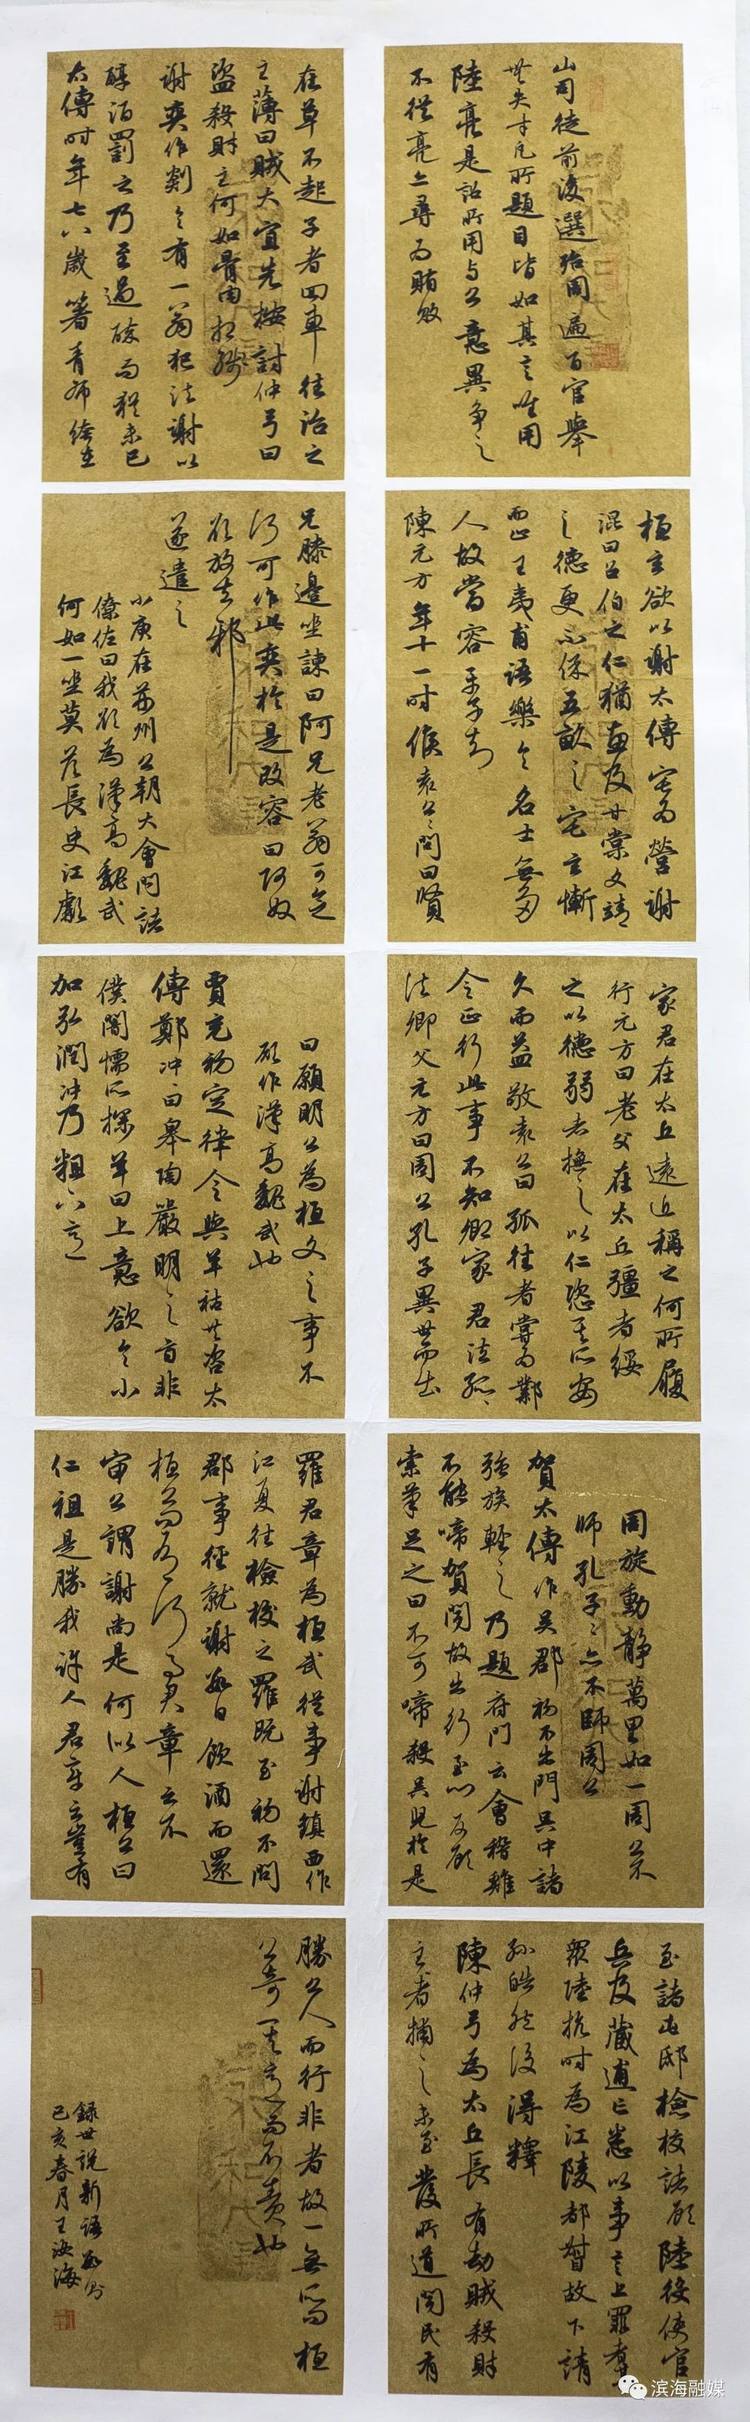 山司徒前後選殆周遍百官舉
無失才凡所題目皆如其言唯用
陸亮是詔所用与公意異争之
不從亮亦尋為賄敗
桓玄欲以謝太傅宅為營謝
混曰召伯之仁猶惠及甘棠文靖
之德更不保五畝之宅玄慚
而止王夷甫語樂令名士無多
人故當容平子知
陳元方年十一時候袁公々問曰賢
家君在太丘遠近稱之何所履
行元方曰老父在太丘彊者綏
之以德弱者撫之以仁恣其所安
久而益敬袁公曰孤往者嘗為鄴
令正行此事不知卿家君法孤々
法卿父元方曰周公孔子異世而出
周旋動静萬里如一周公不
師孔子々亦不師周公
賀太傅作吳郡初不出門吳中諸
強族輕之乃題府門云會稽雞
不能啼賀聞故出行至門反顧
索筆足之曰不可啼殺吳兒於是
至諸屯邸檢校諸顧陸役使官
兵及藏逋亡悉以事言上罪者
眾陸抗時為江陵都督故下請
孫皓然後得釋
陳仲弓為太丘長有劫賊殺財
主者捕之未至發所道聞民有
在草不起子者回車往治之
主薄曰賊大宜先按討仲弓曰
盜殺財主何如骨肉相殘
謝奕作剡令有一翁犯法謝以
醇酒罰之乃至過醉而猶未已
太傅時年七八歲著青布絝在
兄膝邊坐諫曰阿兄老翁可念
何可作此奕於是改容曰阿奴
欲放去邪
遂遣之
小庾在荊州公朝大會問諸
僚佐曰我欲為漢高魏武
何如一坐莫答長史江虨
曰願明公為桓文之事不
願作漢高魏武也
賈充初定律令與羊祜共咨太
傅鄭沖々曰皋陶嚴明之旨非
僕闇懦所探羊曰上意欲令小
加弘潤沖乃粗下意
羅君章為桓武從事謝鎮西作
江夏往檢校之羅既至初不問
郡事徑就謝數日飲酒而還
桓公問有何事君章云不
審公謂謝尚是何似人桓公曰
仁祖是勝我許人君章云豈有
勝公人而行非者故一無所問桓
公奇其意而不責也
録世説新語數則
己亥春月王汝海
滨海融媒